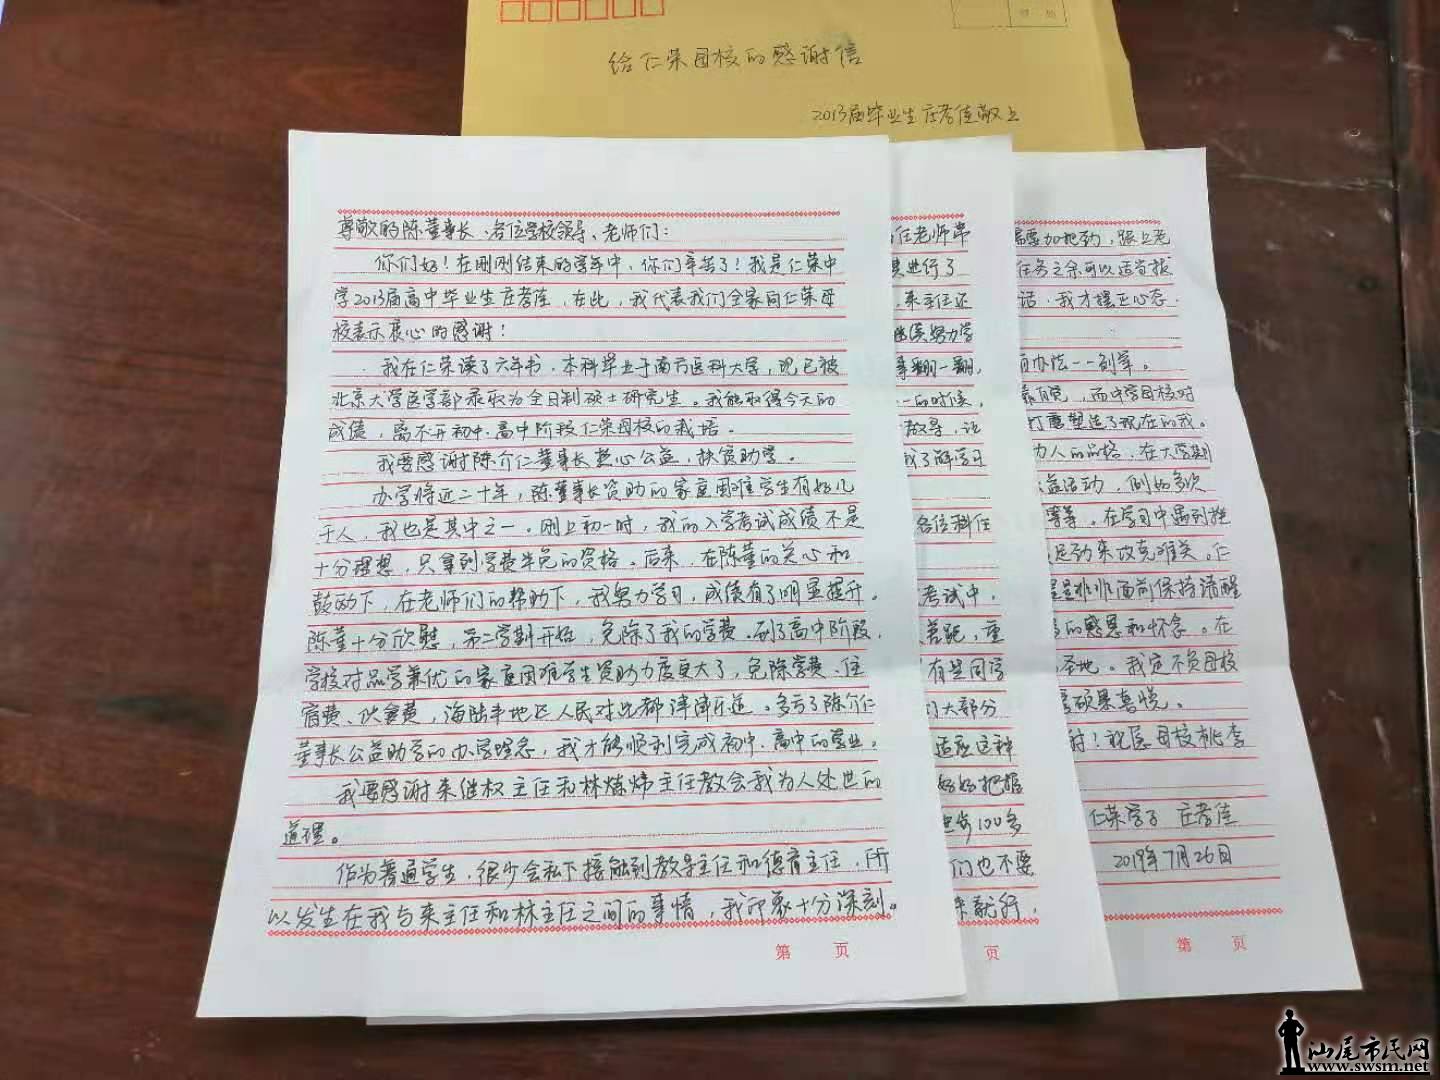 给仁荣母校的感谢信
2013届毕业生庄孝佳敬上
尊敬的陈董事长、各位学校领导、老师们：
你们好！在刚刚结束的学年中，你们辛苦了！我是仁荣中
学2013届高中毕业生庄孝佳，在此，我代表我们全家向仁荣母
校表示衷心的感谢！
我在仁荣读了六年书，本科毕业于南方医科大学，现已被
北京大学医学部录取为全日制硕士研究生。我能取得今天的
成绩，离不开初中、高中阶段仁荣母校的栽培。
我要感谢陈介仁董事长热心公益，扶贫助学。
办学将近二十年，陈董事长资助的家庭困难学生有好几
千人，我也是其中之一。刚上初一时，我的入学考试成绩不是
十分理想，只拿到学费半免的资格。后来，在陈董的关心和
鼓励下，在老师们的帮助下，我努力学习，成绩有了明显提升。
陈董十分欣慰，第二学期开始，免除了我的学费。到了高中阶段，
学校对品学兼优的家庭困难学生资助力度更大了，免除学费、住
宿费、伙食费，海陆丰地区人民对此都津津乐道。多亏了陈介仁
董事长公益助学的办学理念，我才能顺利完成初中、高中的学业。
我要感谢来继权主任和林炼炜主任教会我为人处世的
道理。
作为普通学生，很少会私下接触到教导主任和德育主任，所
以发生在我与来主任和林主任之间的事情，我印象十分深刻。
第 页
任老师带
进行了
，来主任还
继续努力学
事翻一翻，
一的时候，
教导，让
我了解学习
各位科任
考试中，
差距，重
有些同学
们大部分
适应这种
好好把握
进步100多
们也不要
来就行，
页
需要加把劲，跟上老
任务之余可以适当找
话，我才摆正心态，
有办法一一列举。
，而中学母校对
打磨塑造了现在的我。
为人的品格，在大学期
公益活动，例如多次
等等。在学习中遇到挫
足劲来攻克难关。在
是是非非面前保持清醒
的感恩和怀念。在
圣地。我定不负母校
硕果喜悦。
时！祝愿母校桃李
仁荣学子 庄孝佳
2019年7月26日
第 页
汕尾市民网
www.swsm.net